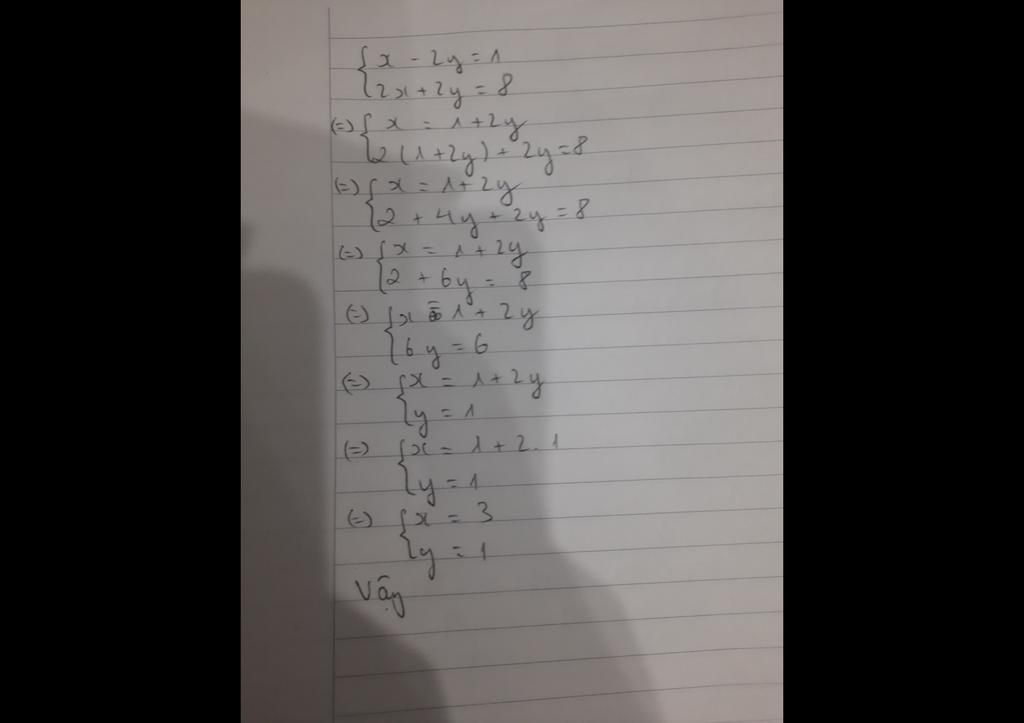 { x - 2y = 1
2x + 2y = 8
(=) { x = 1 + 2y
2(1+2y) + 2y = 8
(=) { x = 1 + 2y
2 + 4y + 2y = 8
(=) { x = 1 + 2y
2 + 6y = 8
(=) { x = 1 + 2y
6y = 6
(=) { x = 1 + 2y
y = 1
(=) { x = 1 + 2.1
y = 1
(=) { x = 3
y = 1
Vậy